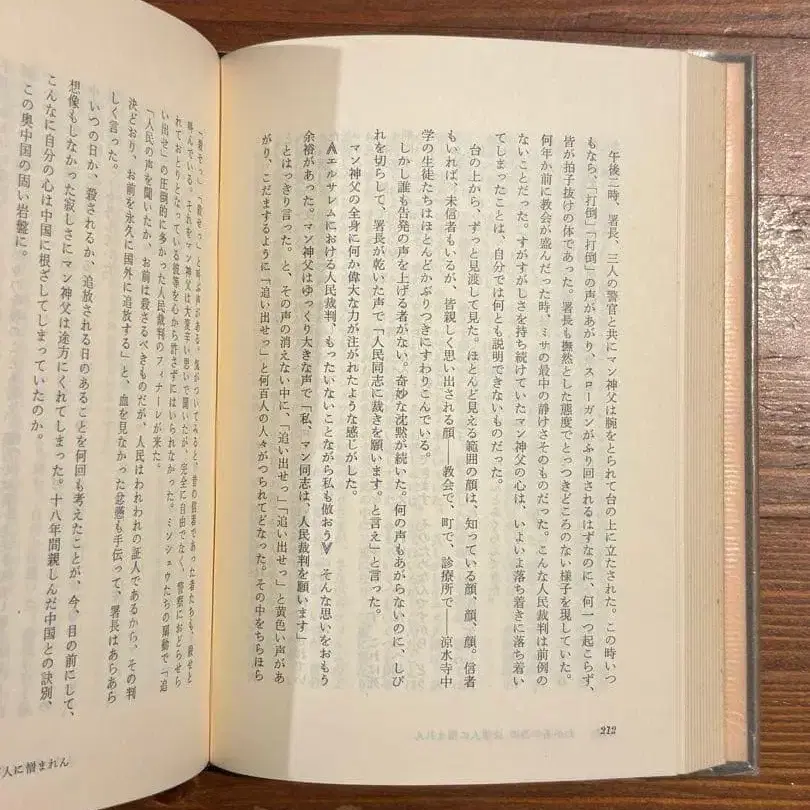 午後二時、署長、三人の警官と共にマン神父は腕をとられて台の上に立たされた。この時いつ
もなら、「打倒」「打倒」の声があがり、スローガンがふり回されるはずなのに、何一つ起こらず、
皆が拍子抜けの体であった。署長も憮然とした態度でとっつきどころのない様子を現していた。
何年か前に教会が盛んだった時、ミサの最中の静けさそのものだった。こんな人民裁判は前例の
ないことだった。すがすがしさを持ち続けていたマン神父の心は、いよいよ落ち着きに落ち着い
てしまったことは、自分では何とも説明できないものだった。
台の上から、ずっと見渡して見た。ほとんど見える範囲の顔は、知っている顔、顔、顔。信者
もいれば、未信者もいるが、皆親しく思い出される顔――教会で、町で、診療所で――涼水寺中
学の生徒たちはほとんどかぶりつきにすわりこんでいる。
しかし誰も告発の声を上げる者がない。奇妙な沈黙が続いた。何の声もあがらないのに、しび
れを切らして、署長が乾いた声で「人民同志に裁きを願います。と言え」と言った。
マン神父の全身に何か偉大な力が注がれたような感じがした。
≪エルサレムにおける人民裁判、もったいないことながら私も倣おう≫ そんな思いをおもう
余裕があった。マン神父はゆっくり大きな声で「私、マン同志は、人民裁判を願います」
とはっきり言った。と、その声の消えない中に、「追い出せっ」「追い出せっ」と黄色い声があ
がり、こだまするように「追い出せっ」と何百人の人々がつられてどなった。その中をちらほら
「殺せっ」「殺せっ」と呼ぶ声がある。気がついてみると、昔の信者であった者たちも、殺せと
叫んでいる。それをマン神父は大変辛い思いで聞いたが、完全に自由でなく、警察におどらせら
れておとりとなっている彼等を心から許さずにはいられなかった。ミンシュウたちの扇動で「追
い出せ」の圧倒的に多かった人民裁判のフィナーレが来た。
「人民の声を聞いたか、お前は殺さるべきものだが、人民はわれわれの証人であるから、その判
決どおり、お前を永久に国外に追放する」と、血を見なかった忿懣も手伝って、署長はあらあら
しく言った。
いつの日か、殺されるか、追放される日のあることを何回も考えたことが、今、目の前にして、
想像もしなかった寂しさにマン神父は途方にくれてしまった。十八年間親しんだ中国との訣別、
こんなに自分の心は中国に根ざしてしまっていたのか。
この奥中国の固い岩盤に。
212
人に憎まれん